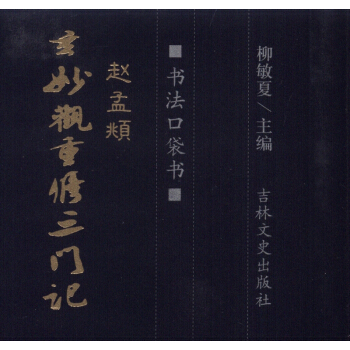 玄妙觀重脩三门记
赵孟頫
■书法口袋书■
柳敏夏／主编
吉林文史出版社